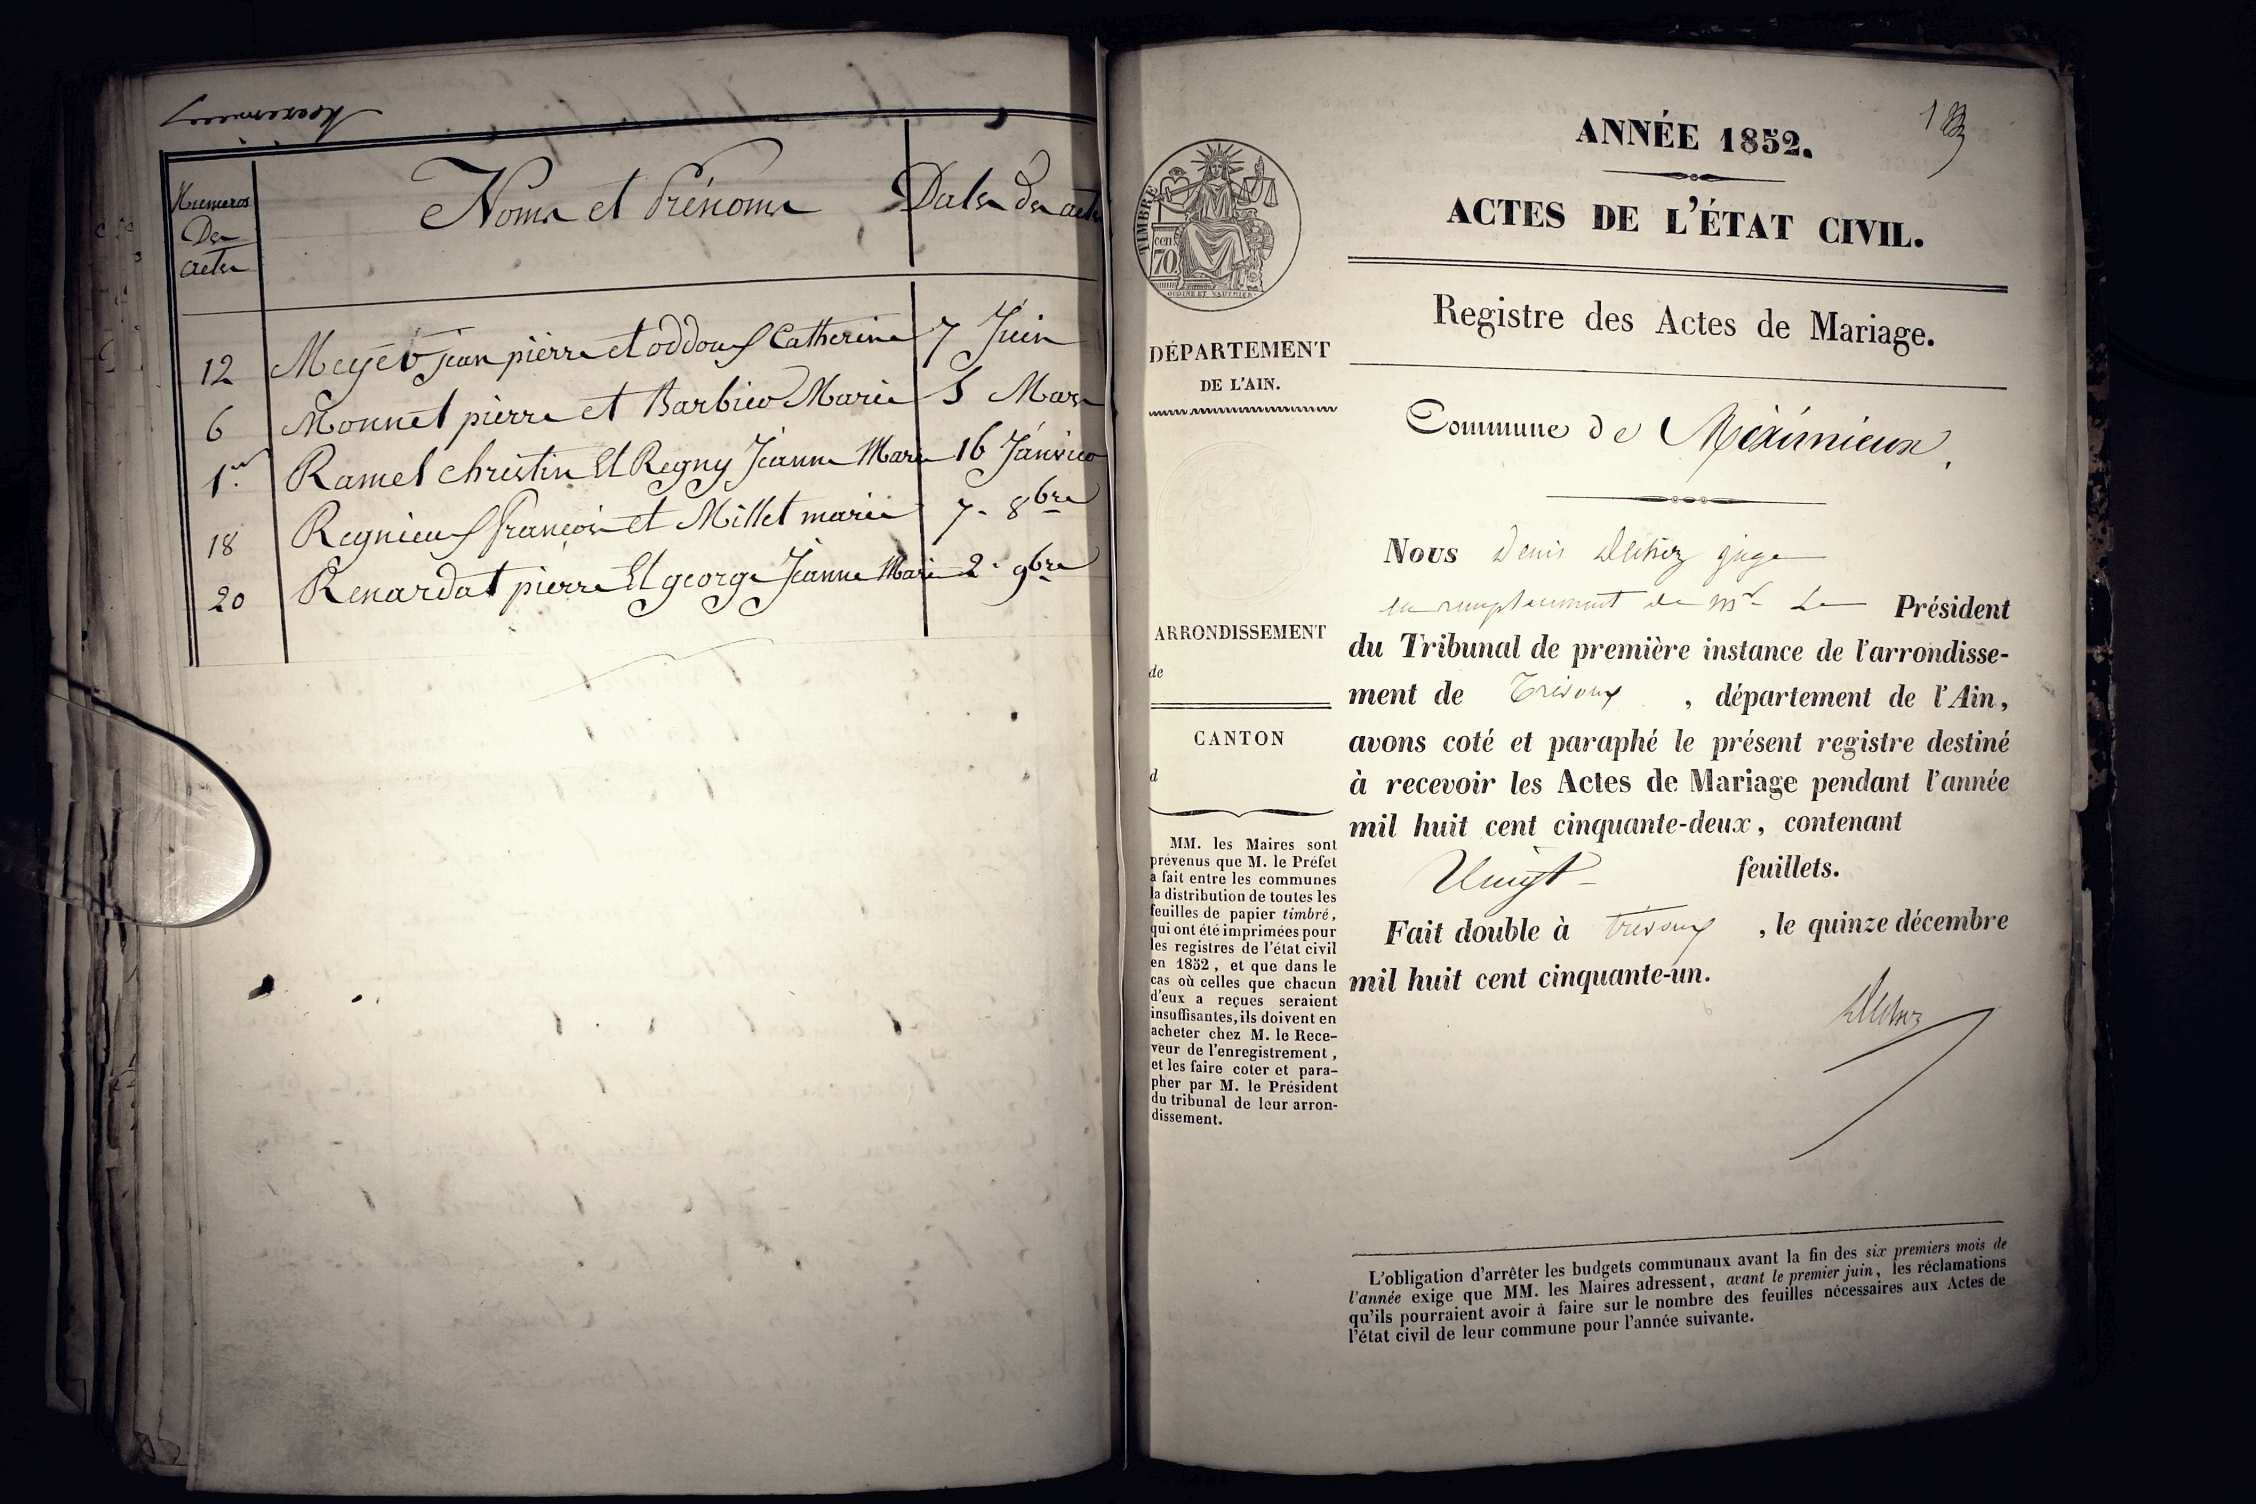 Meximieux
Numeros
Des
actes
Noms et Prénoms
Dates des actes
12 Meyer jean pierre et oddoux Catherine 7 Juin
6 Monnet pierre et Barbier Marie 5 Mars
1er Ramel christin Et Regny Jeanne Marie 16 Janvier
18 Regnieux françois et Millet marie 7. 8bre
20 Renardat pierre Et george Jeanne Marie 2. 9bre
ANNÉE 1852.
ACTES DE L'ÉTAT CIVIL.
Registre des Actes de Mariage.
TIMBRE
cen
70
OUDINÉ ET VAUTHIER
DÉPARTEMENT
DE L'AIN.
Commune de Méximieux
ARRONDISSEMENT
de
CANTON
d
MM. les Maires sont
prévenus que M. le Préfet
a fait entre les communes
la distribution de toutes les
feuilles de papier timbré,
qui ont été imprimées pour
les registres de l'état civil
en 1852, et que dans le
cas où celles que chacun
d'eux a reçues seraient
insuffisantes, ils doivent en
acheter chez M. le Rece-
veur de l'enregistrement,
et les faire coter et para-
pher par M. le Président
du tribunal de leur arron-
dissement.
Nous Denis juge
en remplacement de Mr Le Président
du Tribunal de première instance de l'arrondisse-
ment de Trévoux, département de l'Ain,
avons coté et paraphé le présent registre destiné
à recevoir les Actes de Mariage pendant l'année
mil huit cent cinquante-deux, contenant
Vingt feuillets.
Fait double à trévoux, le quinze décembre
mil huit cent cinquante-un.
L'obligation d'arrêter les budgets communaux avant la fin des six premiers mois de
l'année exige que MM. les Maires adressent, avant le premier juin, les réclamations
qu'ils pourraient avoir à faire sur le nombre des feuilles nécessaires aux Actes de
l'état civil de leur commune pour l'année suivante.